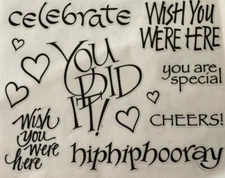 celebrate
WISH YOU
WERE HERE
YOU
DID
IT!
you are
special
CHEERS!
wish
you
were
here
hiphiphooray